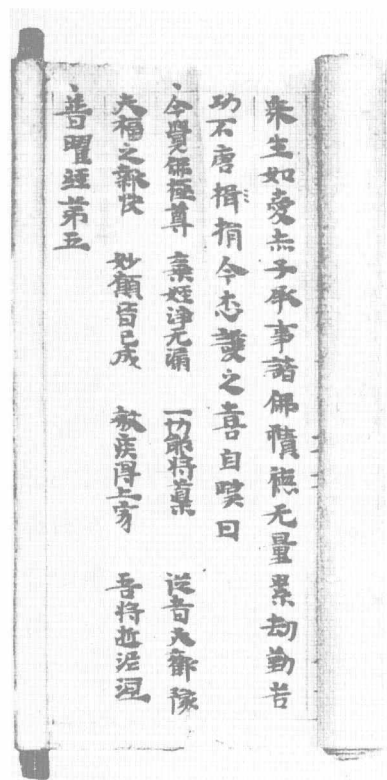 衆生如愛赤子承事諸佛積德无量累劫勤苦
功不唐揖捐今悉護之喜自嘆曰
今覺佛極尊　棄婬淨无漏　一切能將導　從者大歡豫
夫福之報快　妙願皆已成　敏疾得上寂　吾將逝泥洹
普曜經第五